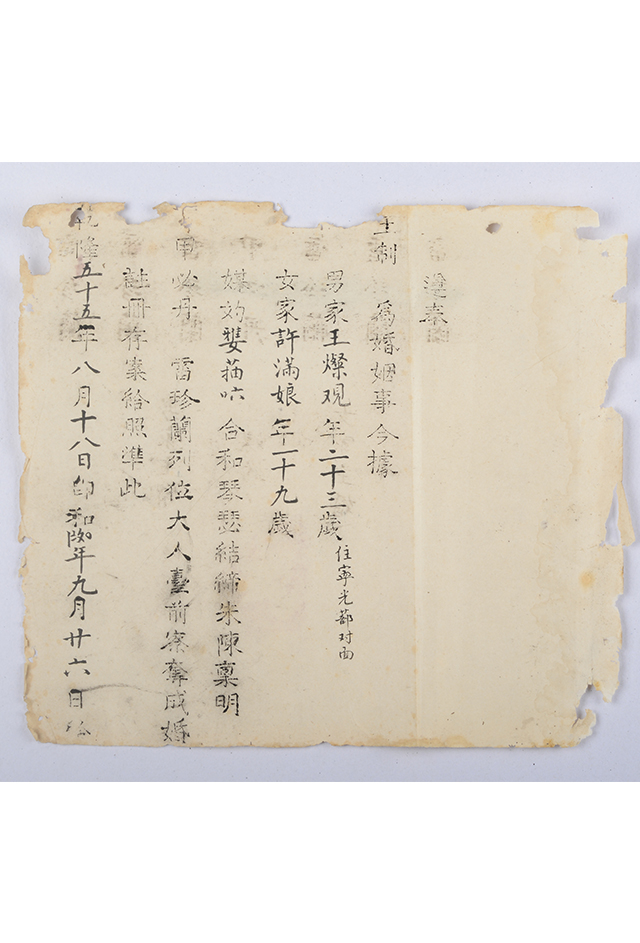 遵奉
王制 為婚姻事今據
男家王燦观 年二十三歲 住寧光蔀对面
女家許滿娘 年一十九歲
媒妁雙描吽 合和琴瑟結締朱陳稟明
甲必丹 雷珍蘭列位大人臺前察奪成婚
註冊存案給照準此
乾隆五十五年八月十八日卽和陶年九月廿六日給